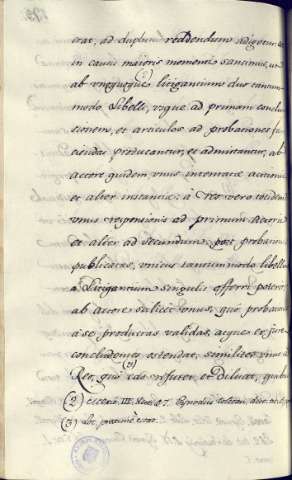 erat, ad duplum reddendum adigetur. et
in causis maioris momenti sancimus, ut
ab unoquoque litigantium duo tantum
modo Libelli, usque ad primam conclu
sionem, et articulos ad probationes fa
ciendas producantur, et admittantur, ab
actore quidem, unus intentatæ actionis
et alter instantiæ: à reo vero totidem
unus responsionis ad primum Actoris
et alter ad secundum; post probationes
publicatas, unicus tantummodo libellus
à Litigantium singulis offerri poterit,
ab actore scilicet unus, quo probationes
à se productas validas, atque ex jure
concludentes ostendat, similiter unus à
Reo, quo eas refutet, et diluat, quibus
(2) Synodus toletan.
(3)